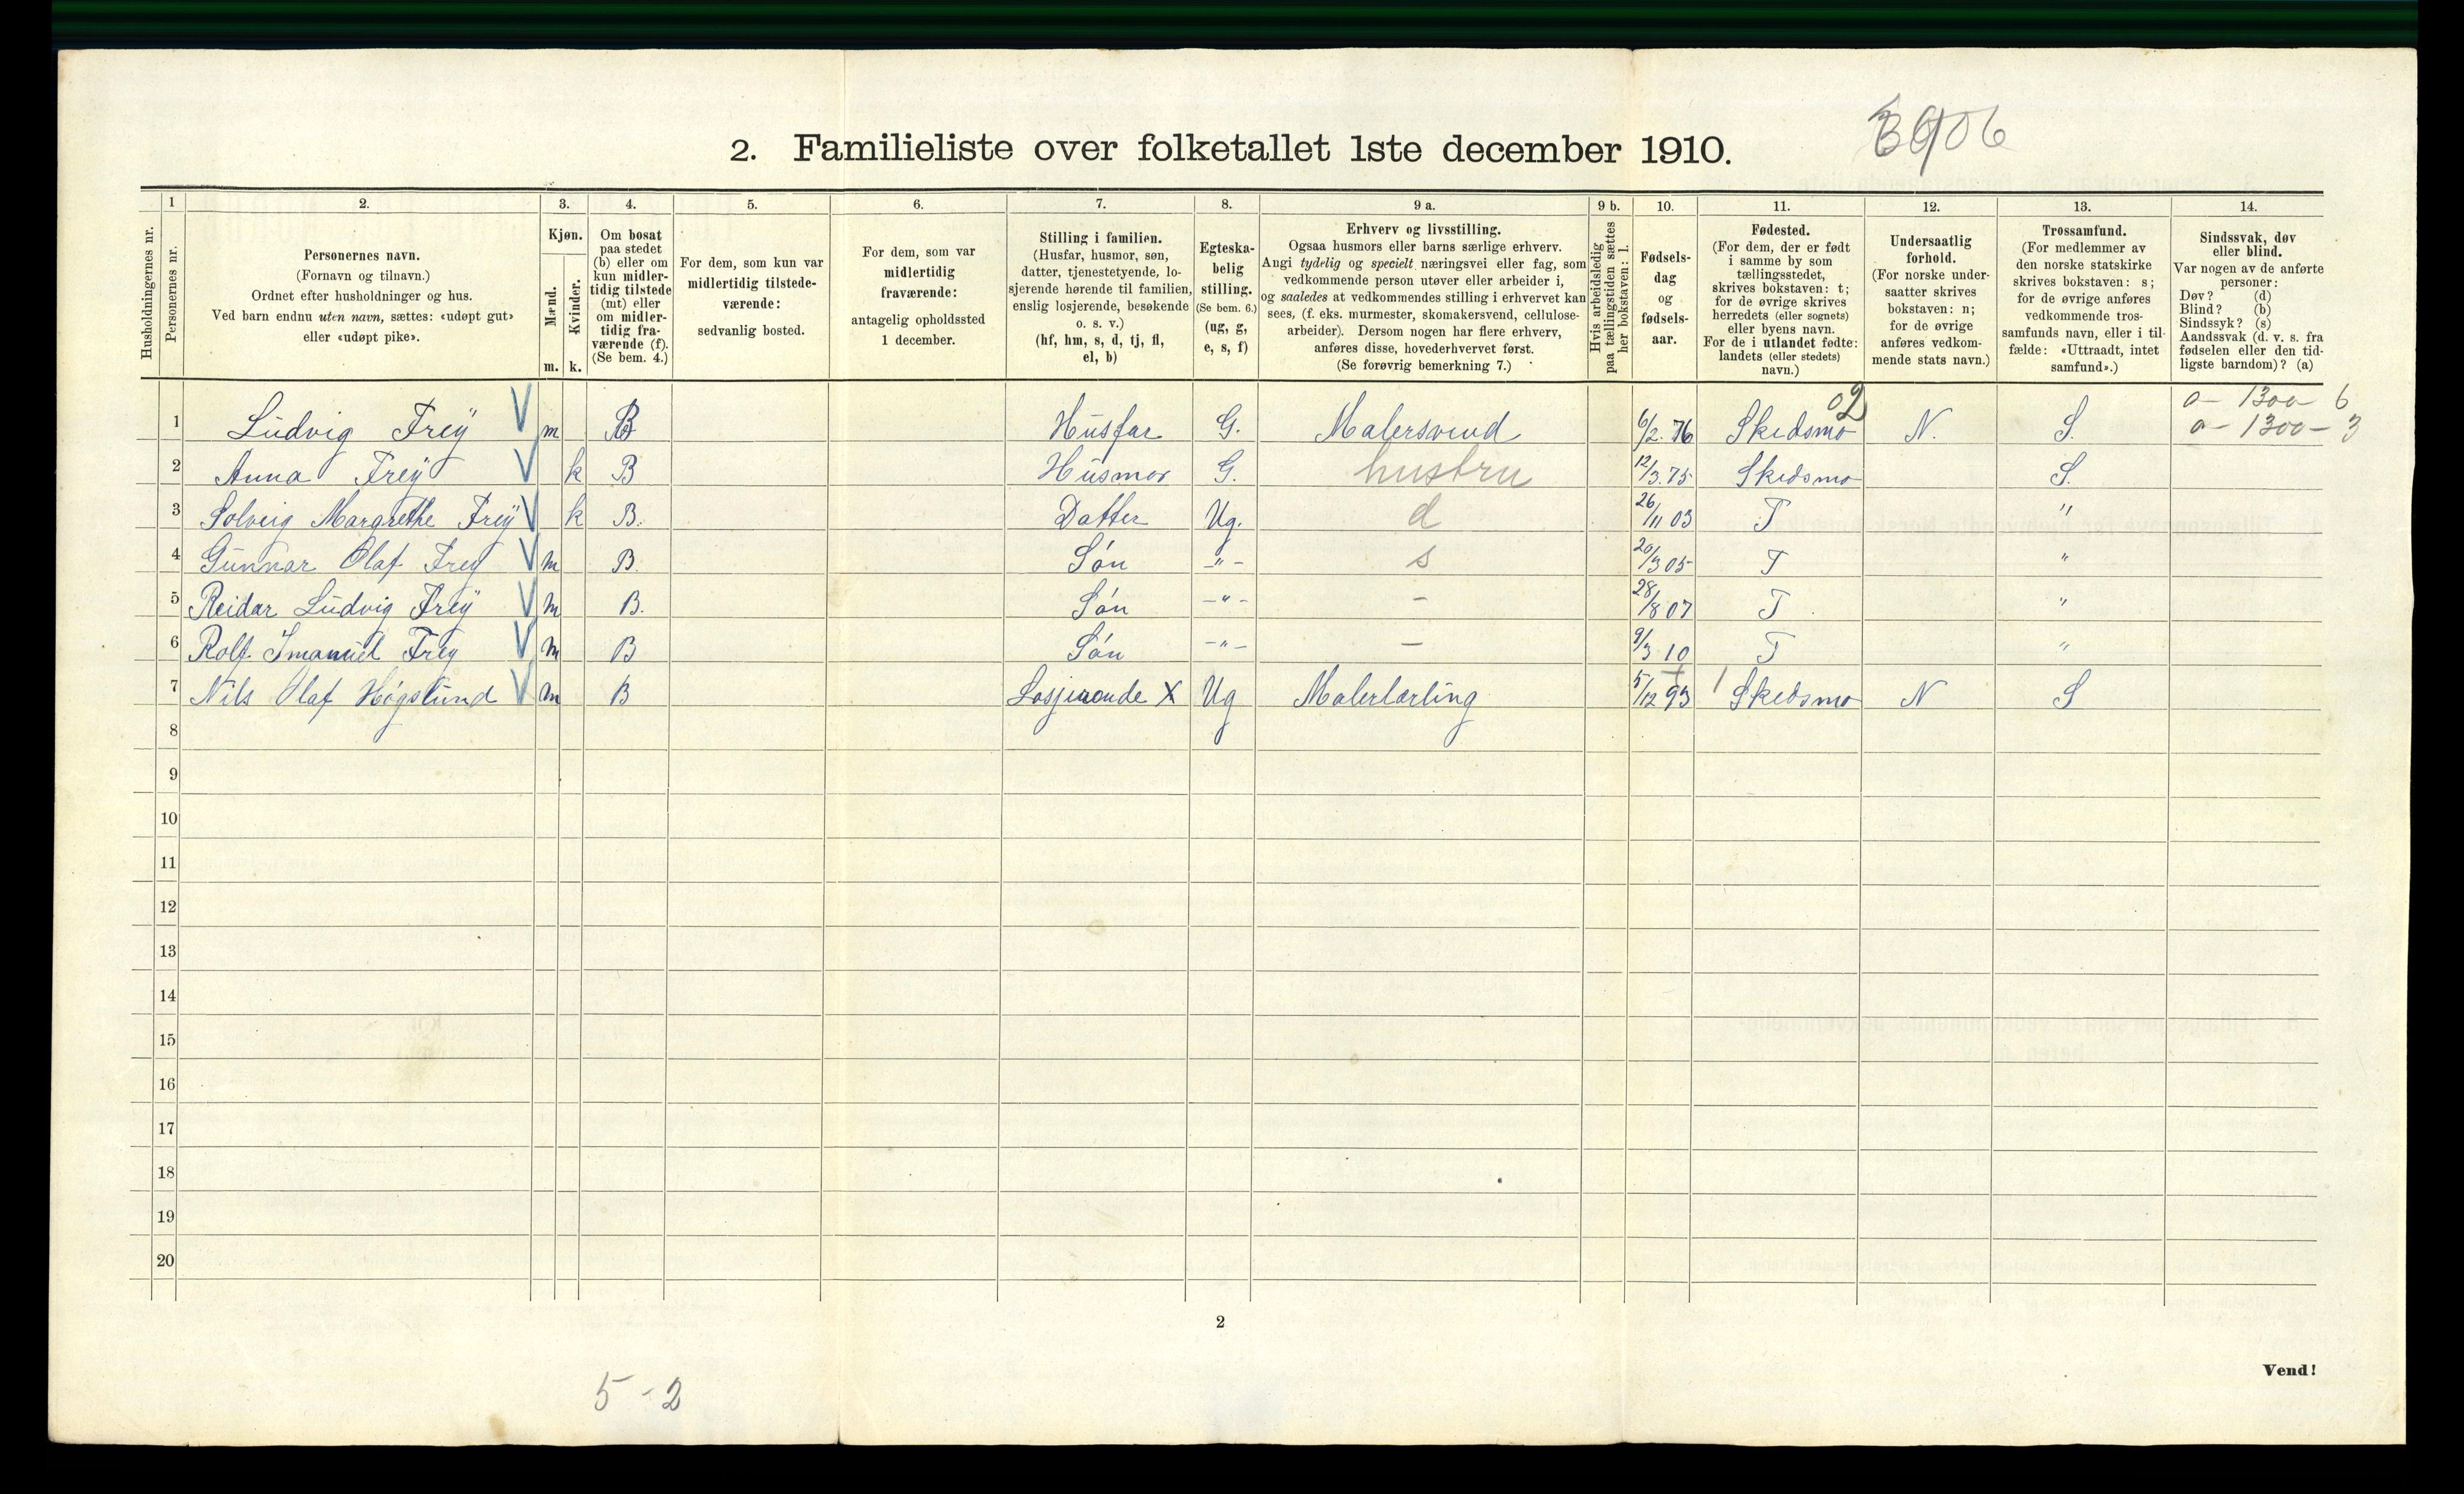 2. Familieliste over folketallet 1ste december 1910.
1 2. 3. 4. 5. 6. 7. 8. 9 a. 9 b. 10. 11. 12. 13. 14.
Husholdningernes nr.
Personernes nr.
Personernes navn.
(Fornavn og tilnavn.)
Ordnet efter husholdninger og hus.
Ved barn endnu uten navn, sættes: «udøpt gut»
eller «udøpt pike».
Kjøn.
Mænd.
Kvinder.
m. k.
Om bosat
paa stedet
(b) eller om
kun midler-
tidig tilstede
(mt) eller
om midler-
tidig fra-
værende (f).
(Se bem. 4.)
For dem, som kun var
midlertidig tilstede-
værende:
sedvanlig bosted.
For dem, som var
midlertidig
fraværende:
antagelig opholdssted
1 december.
Stilling i familien.
(Husfar, husmor, søn,
datter, tjenestetyende, lo-
sjerende hørende til familien,
enslig losjerende, besøkende
o. s. v.)
(hf, hm, s, d, tj, fl,
el, b)
Egteska-
belig
stilling.
(Se bem. 6.)
(ug, g,
e, s, f)
Erhverv og livsstilling.
Ogsaa husmors eller barns særlige erhverv.
Angi tydelig og specielt næringsvei eller fag, som
vedkommende person utøver eller arbeider i,
og saaledes at vedkommendes stilling i erhvervet kan
sees, (f. eks. murmester, skomakersvend, cellulose-
arbeider). Dersom nogen har flere erhverv,
anføres disse, hovederhvervet først.
(Se forøvrig bemerkning 7.)
Hvis arbeidsledig
paa tællingstiden sættes
her bokstaven: l.
Fødsels-
dag
og
fødsels-
aar.
Fødested.
(For dem, der er født
i samme by som
tællingsstedet,
skrives bokstaven: t;
for de øvrige skrives
herredets (eller sognets)
eller byens navn.
For de i utlandet fødte:
landets (eller stedets)
navn.)
Undersaatlig
forhold.
(For norske under-
saatter skrives
bokstaven: n;
for de øvrige
anføres vedkom-
mende stats navn.)
Trossamfund.
(For medlemmer av
den norske statskirke
skrives bokstaven: s;
for de øvrige anføres
vedkommende tros-
samfunds navn, eller i til-
fælde: «Uttraadt, intet
samfund».)
Sindssvak, døv
eller blind.
Var nogen av de anførte
personer:
Døv? (d)
Blind? (b)
Sindssyk? (s)
Aandssvak (d. v. s. fra
fødselen eller den tid-
ligste barndom)? (a)
02 0 - 1300 - 6
1 Ludvig Frey V m B Husfar G. Malersvend 6/2. 76 Skedsmo N. S. 0 - 1300 - 3
2 Anna Frey V k B Husmor G. hustru 12/3. 75 Skedsmo S.
3 Solveig Margrethe Frey V k B. Datter Ug. d 26/11 03 T "
4 Gunnar Olaf Frey V m B. Søn -"- s 20/3 05 T "
5 Reidar Ludvig Frey V m B. Søn -"- - 28/8 07 T "
6 Rolf Imanuel Frey V m B Søn -"- - 9/3 10 T "
7 Nils Olaf Høgslund V m B Losjerende X Ug Malerlærling 5/12 93 Skedsmo N S
8
9
10
11
12
13
14
15
16
17
18
19
20
2
Vend!
5 - 2